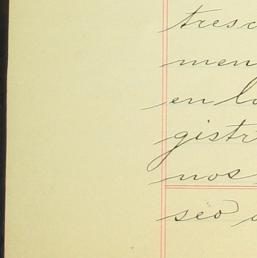 tresc
men
en l
gistr
nos
seo